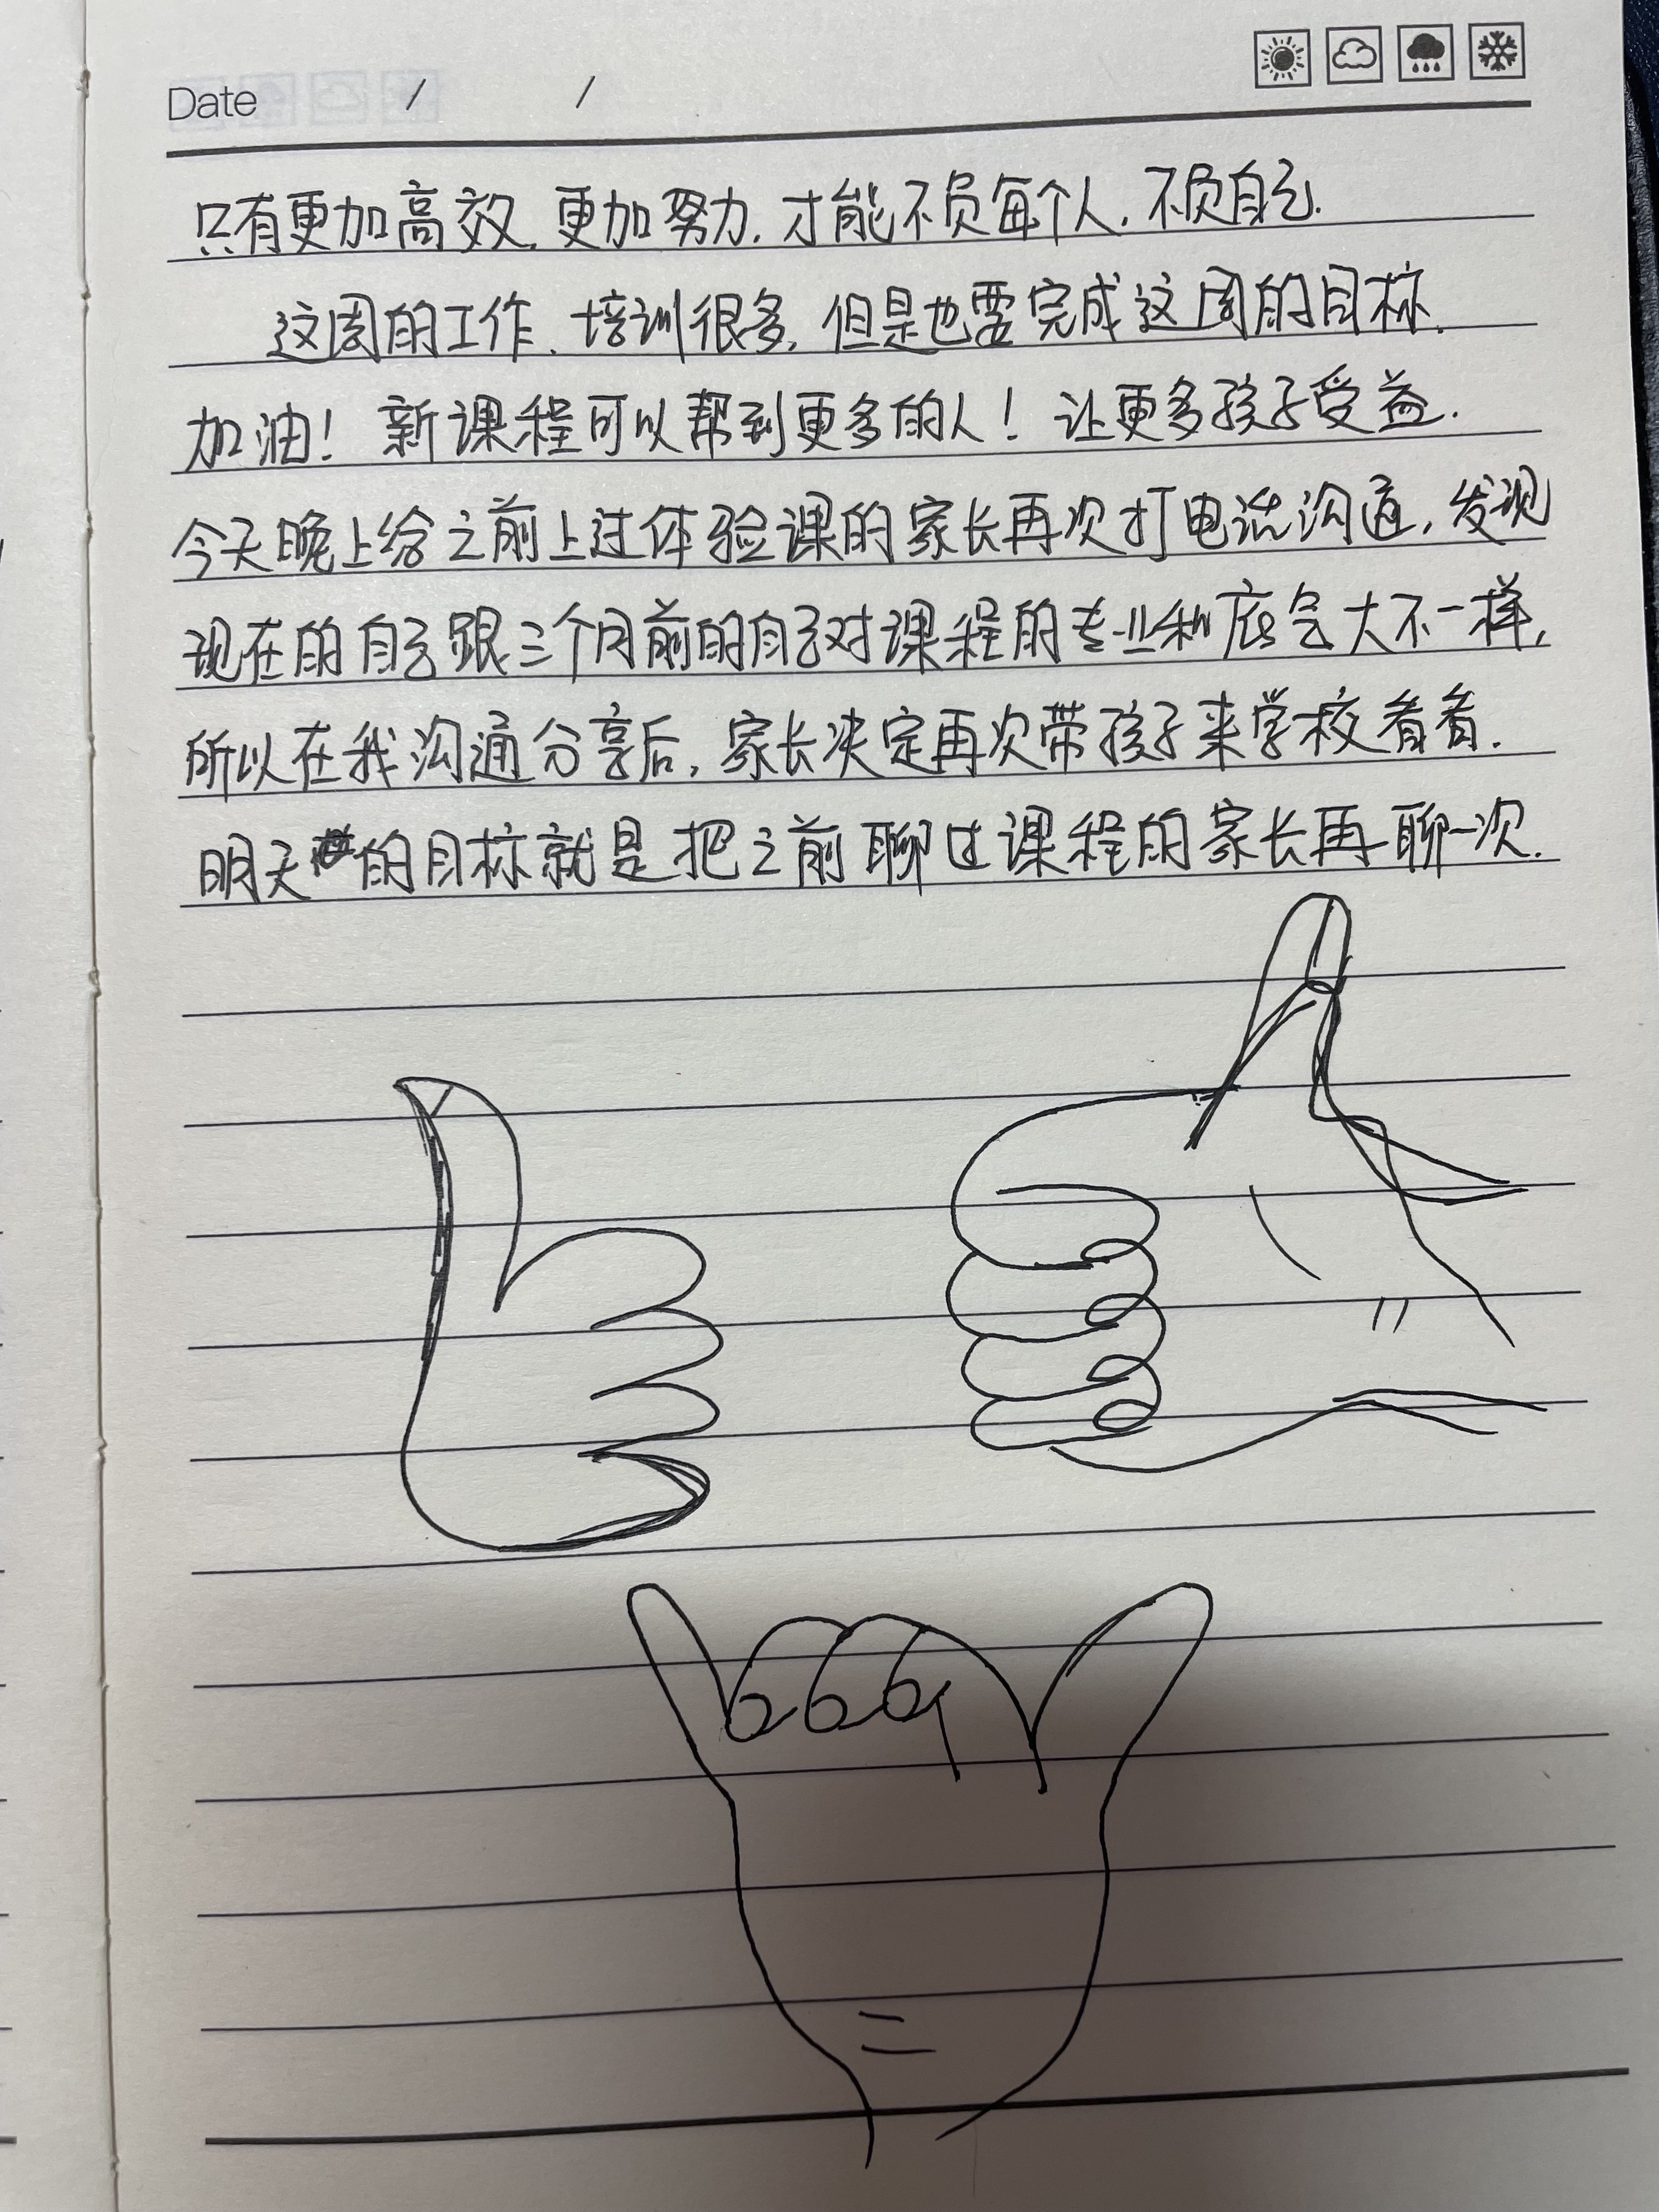 Date / /
只有更加高效.更加努力.才能不负每个人.不负自己.
这周的工作.培训很多,但是也要完成这周的目标.
加油!新课程可以帮到更多的人!让更多孩子受益.
今天晚上给之前上过体验课的家长再次打电话沟通,发现
现在的自己跟三个月前的自己对课程的专业和底气大不一样,
所以在我沟通分享后,家长决定再次带孩子来学校看看.
明天的目标就是把之前聊过课程的家长再聊一次.